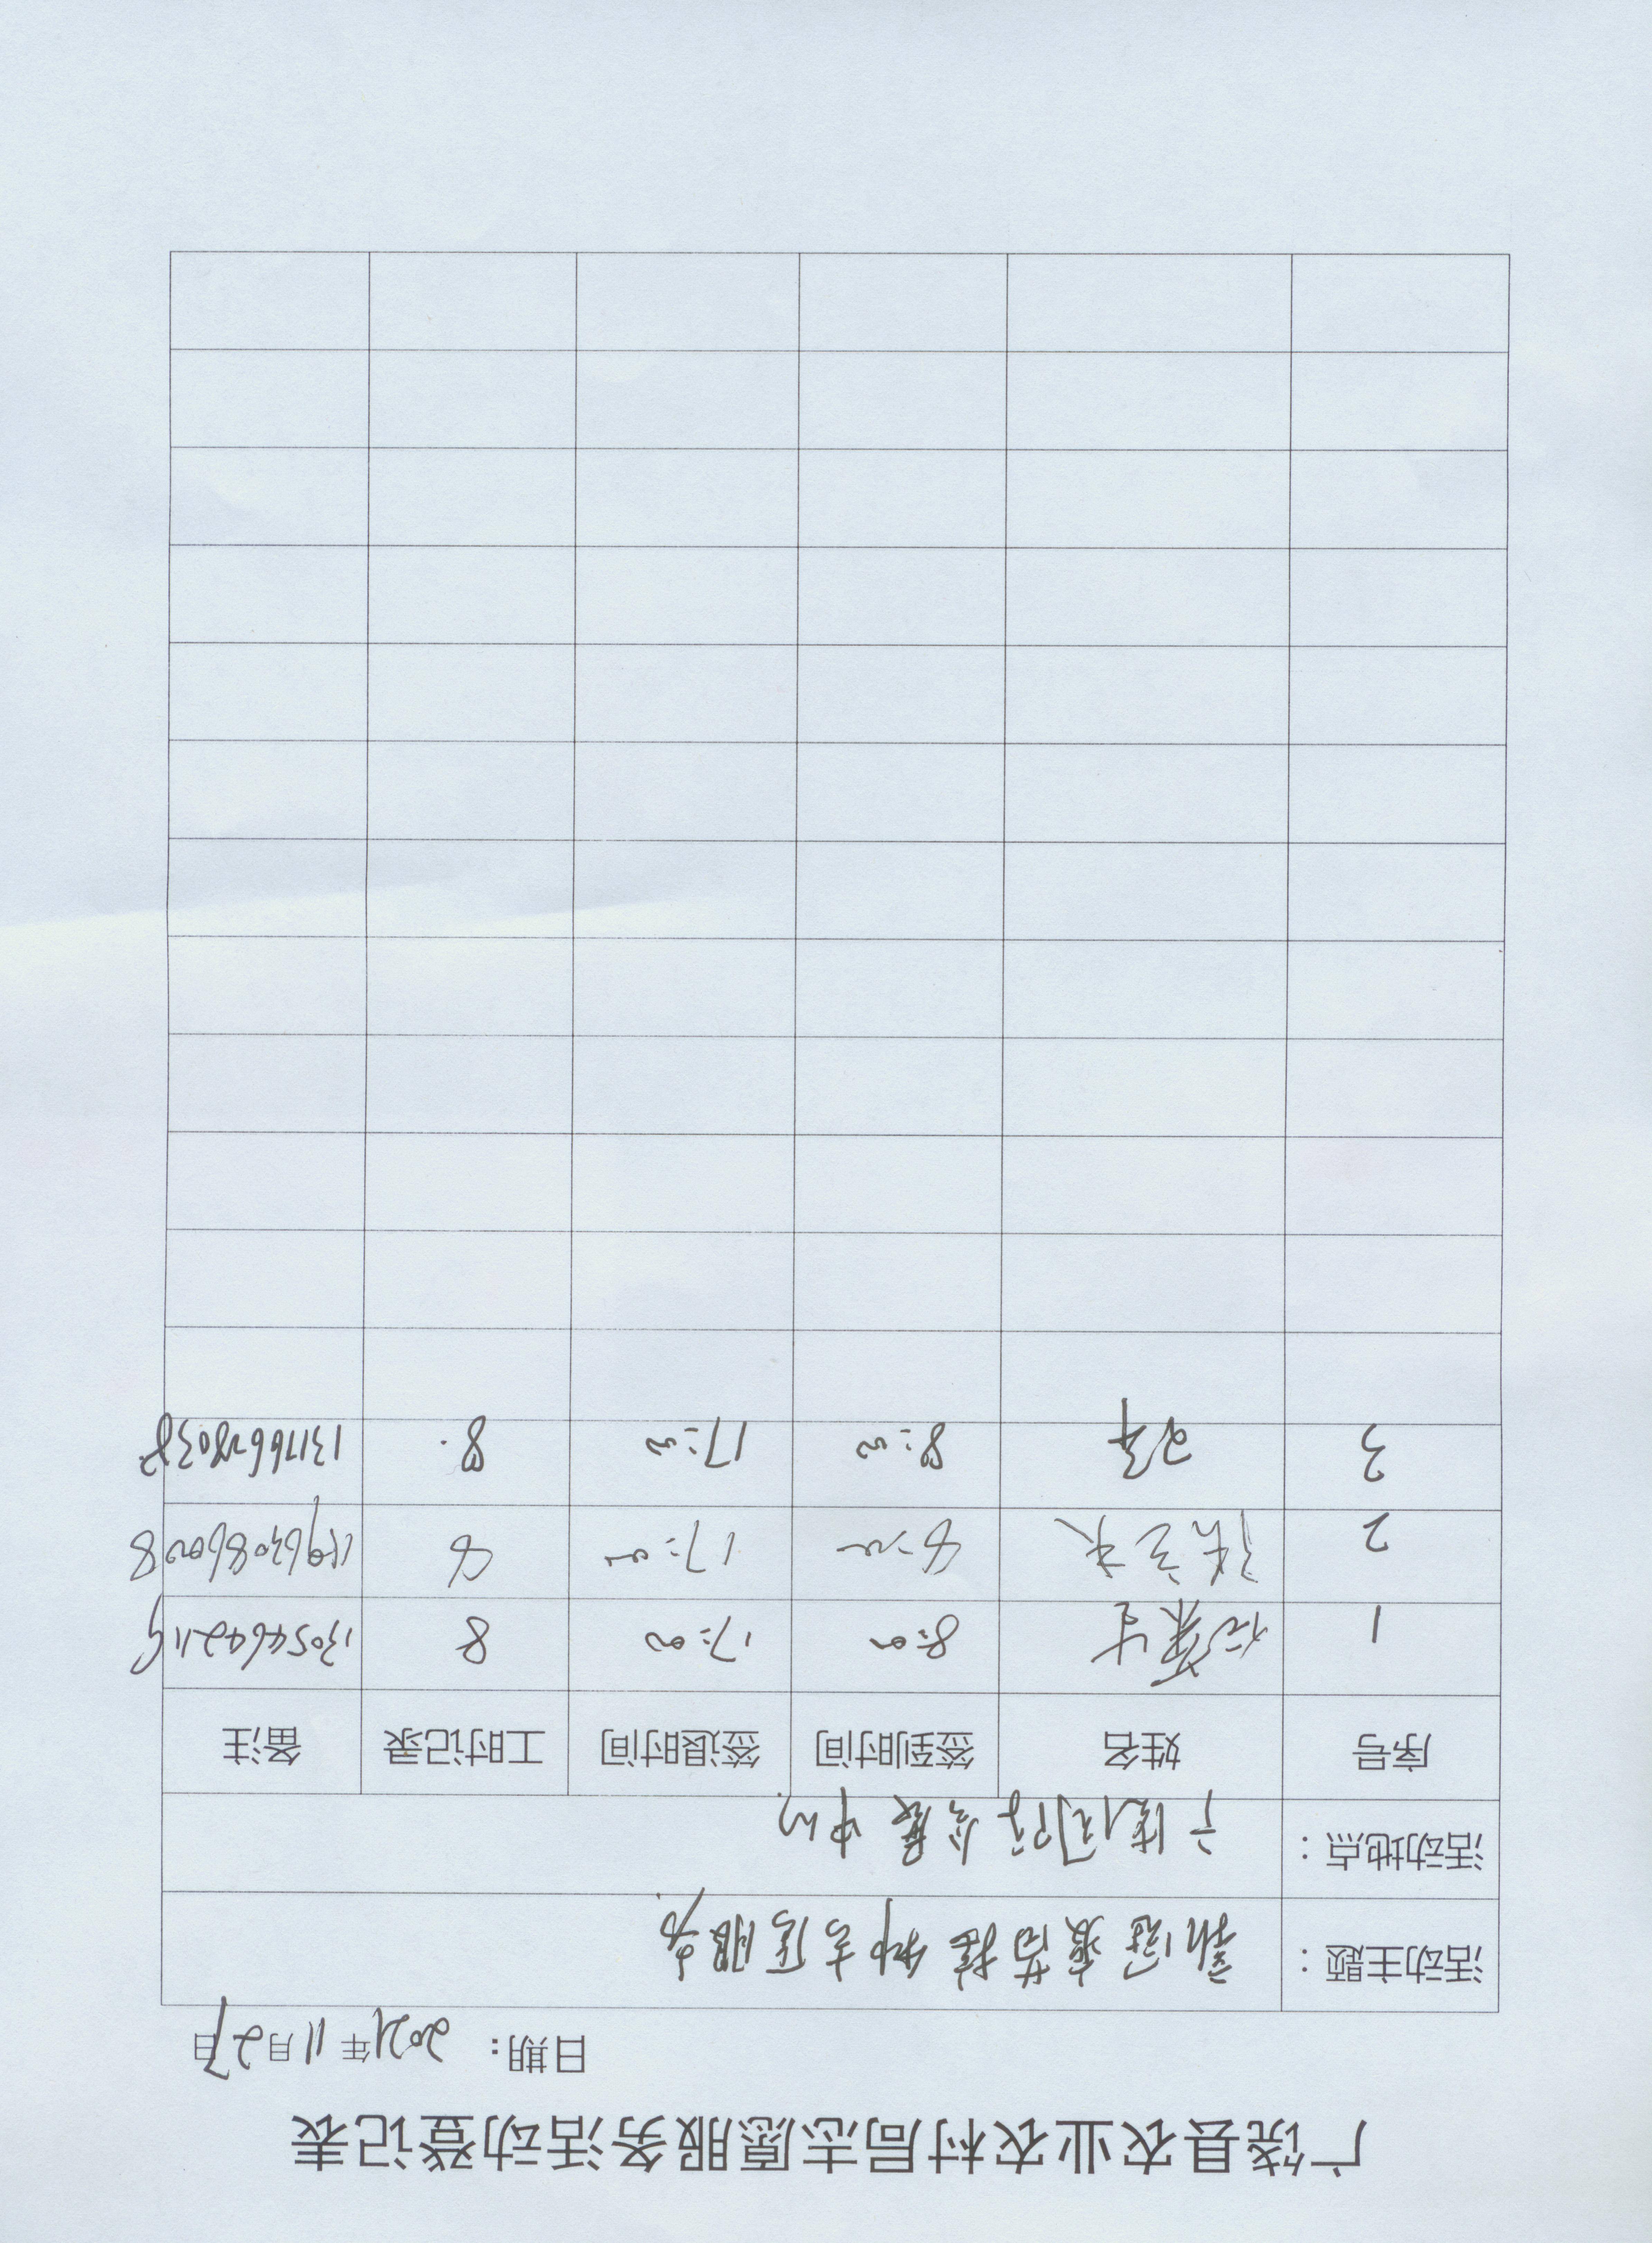 广饶县农业农村局志愿服务活动登记表
日期: 2021年11月27日
活动主题: 新冠疫苗接种志愿服务
活动地点: 广饶国际会展中心
序号 姓名 签到时间 签退时间 工时记录 备注
1 8:00 17:00 8 13054642119
2 8:00 17:00 8
3 8:00 17:00 8 13176628038